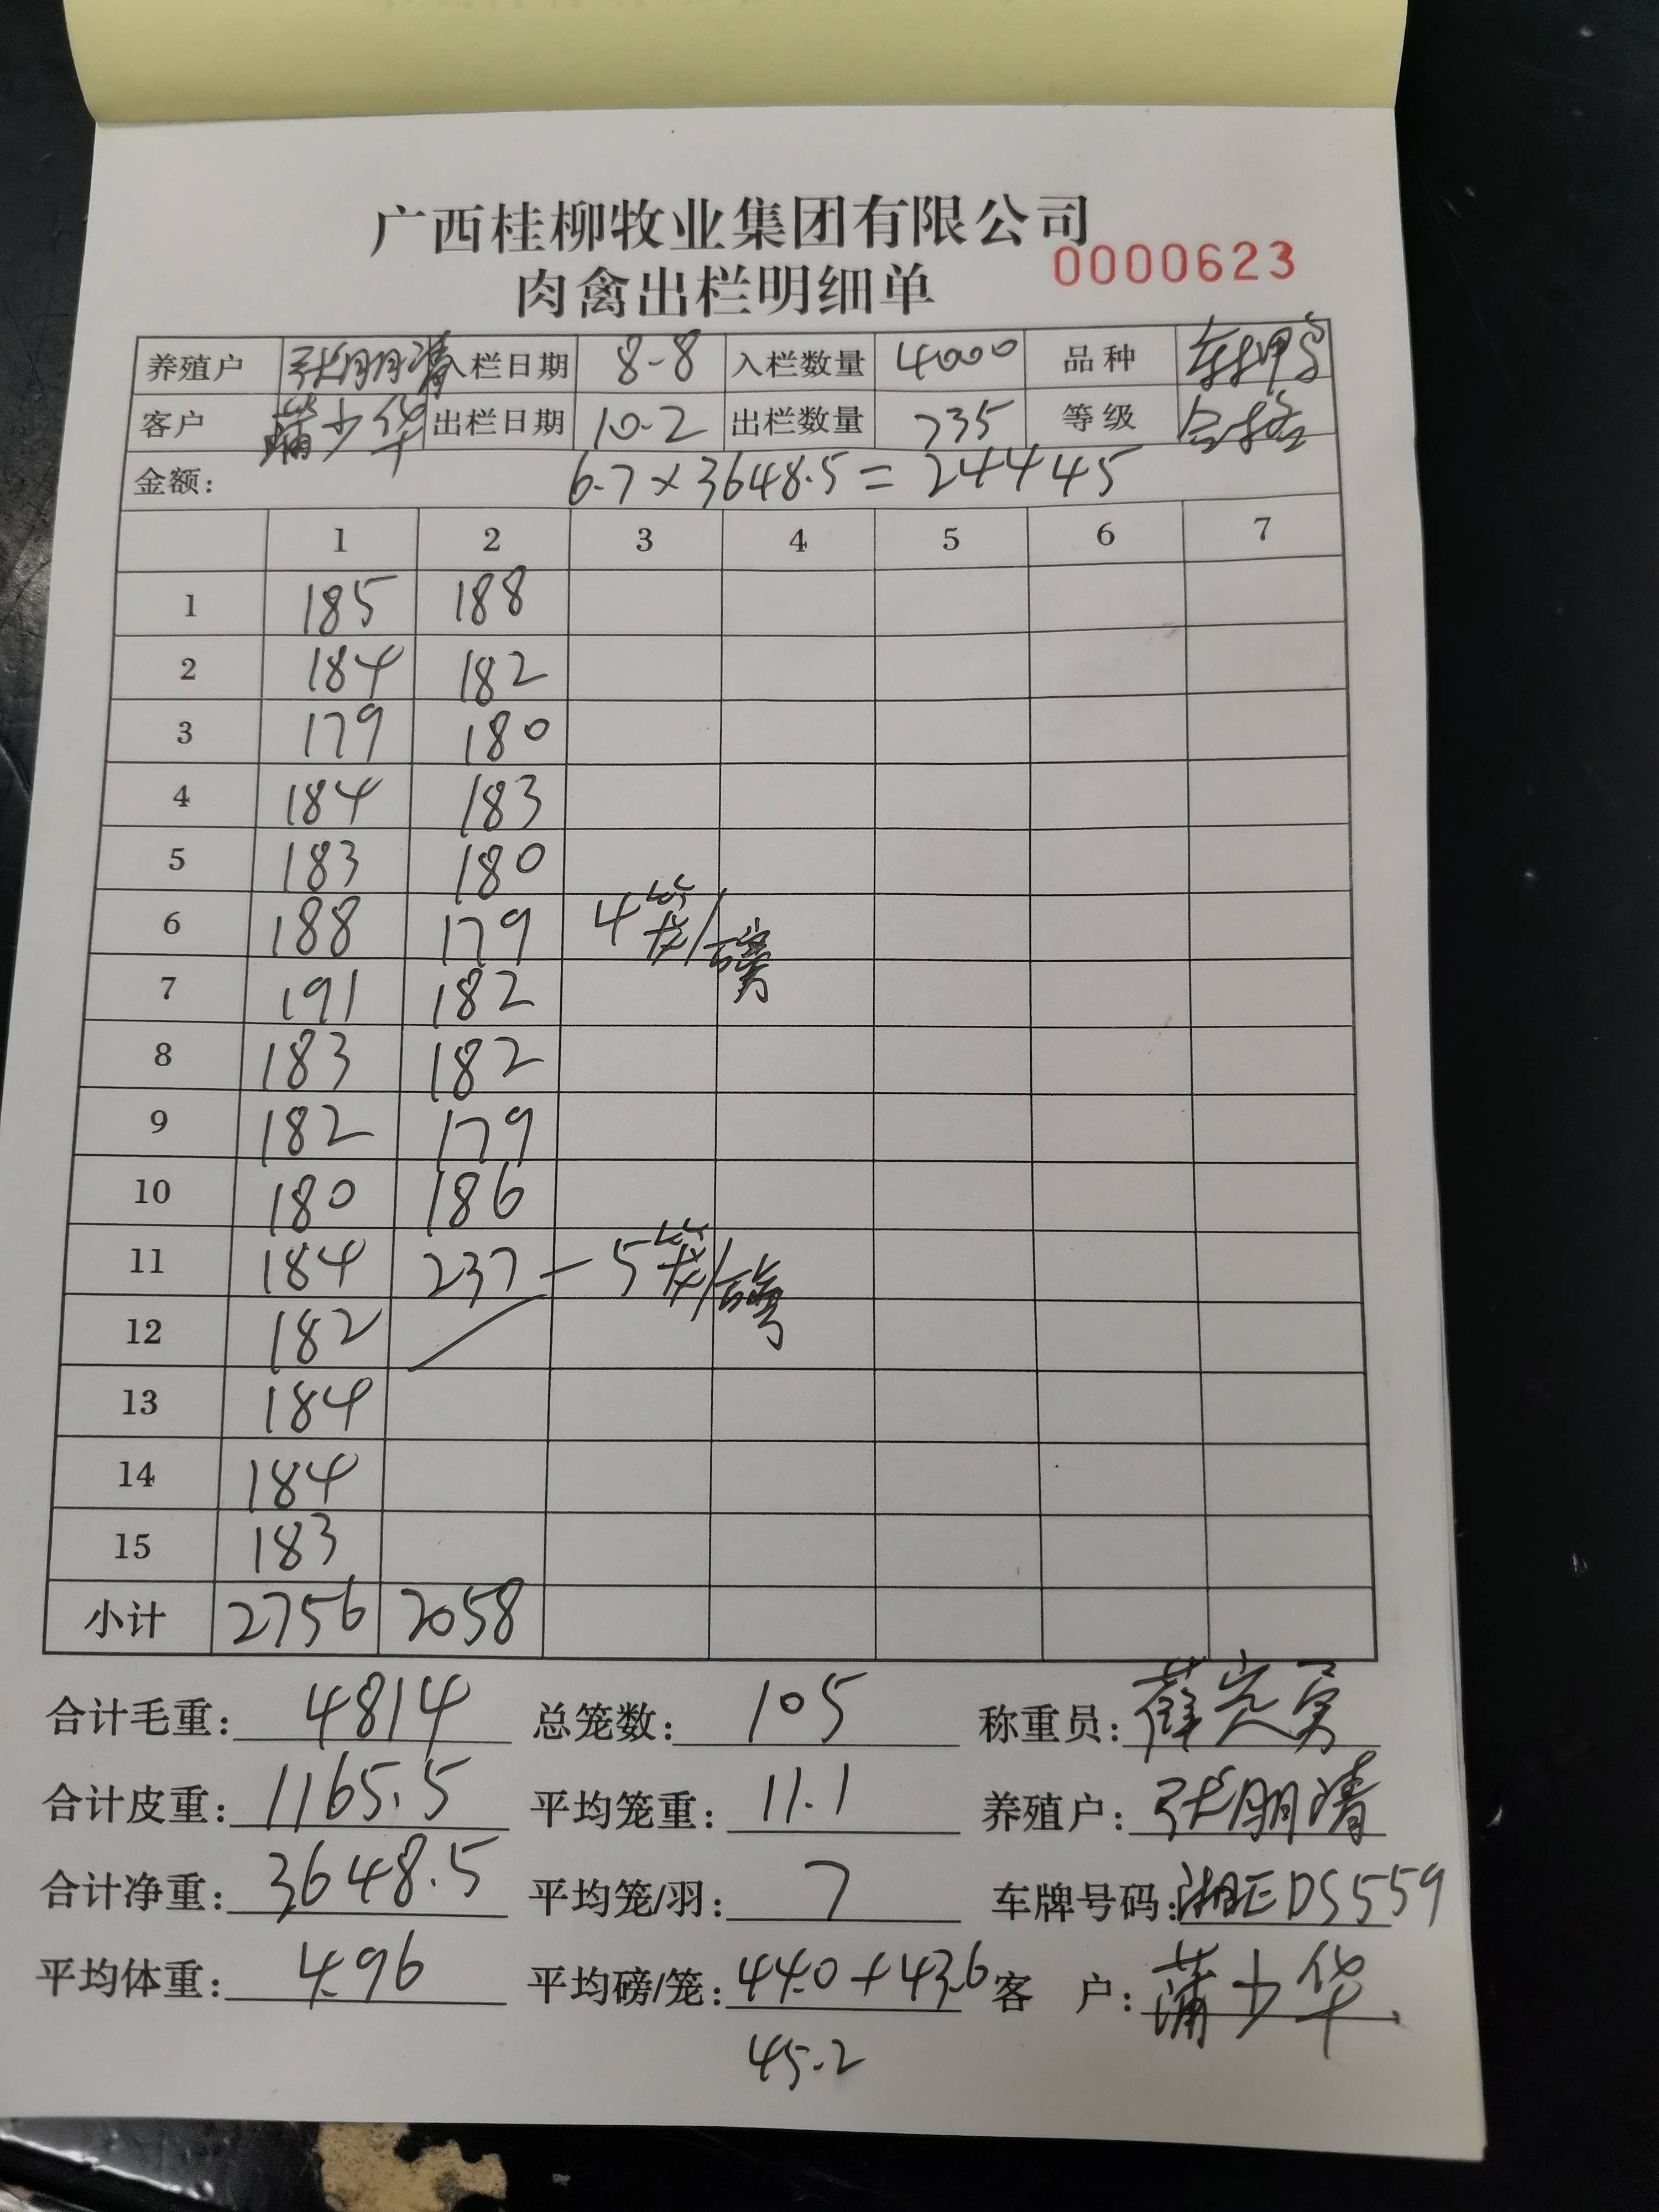 广西桂柳牧业集团有限公司
肉禽出栏明细单 0000623
养殖户 张朋清 入栏日期 8-8 入栏数量 4000 品种
客户 蒲少华 出栏日期 10-2 出栏数量 735 等级 合格
金额: 6.7×3648.5=24445
1 2 3 4 5 6 7
1 185 188
2 184 182
3 179 180
4 184 183
5 183 180
6 188 179 4笼/磅
7 191 182
8 183 182
9 182 179
10 180 186
11 184 237 — 5笼/磅
12 182
13 184
14 184
15 183
小计 2756 2058
合计毛重: 4814 总笼数: 105 称重员: 薛
合计皮重: 1165.5 平均笼重: 11.1 养殖户: 张朋清
合计净重: 3648.5 平均笼/羽: 7 车牌号码: 湘EDS559
平均体重: 4.96 平均磅/笼: 44.0+43.6 客 户: 蒲少华
45.2